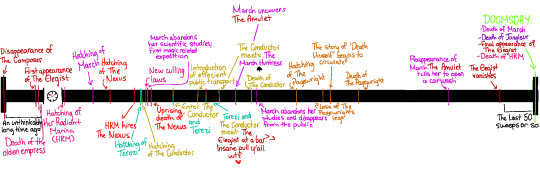 Disappearance of
The Composer
First appearance of
The Elegist
An unthinkably
long time ago
Death of the
olden empress
Hatching of
Her Radiant
Marina
(HRM)
Hatching of
March
Hatching of
The Nexus
HRM hires
The Nexus
March abandons
her scientific studies;
first magic related
expedition
New culling
laws
Hatching of
Terezi
Hatching of
The Conductor
Introduction
of efficient
public transport
Uprising
death of
The Nexus
Enter The
Conductor
and
Terezi
The Conductor
meets The
March Huntress
March uncovers
The Amulet
Death of
The Conductor
Terezi and
The Conductor
meet The
Elegist at a bar?
Insane pull y'all
wtf
March abandons her
studies and disappears
from the public
Hatching of
The Pagewright
The story of 'Death
Itself' begins to
circulate
Loss of The
Pagewright's
legs
Death of
The Pagewright
Reappearance of
March. The Amulet
tells her to open
a carwash
The Elegist
vanishes
The last 50
sweeps or so
DOOMSDAY
-Death of March
-Death of Jongleur
-Final appearance of
The Elegist
-Death of HRM